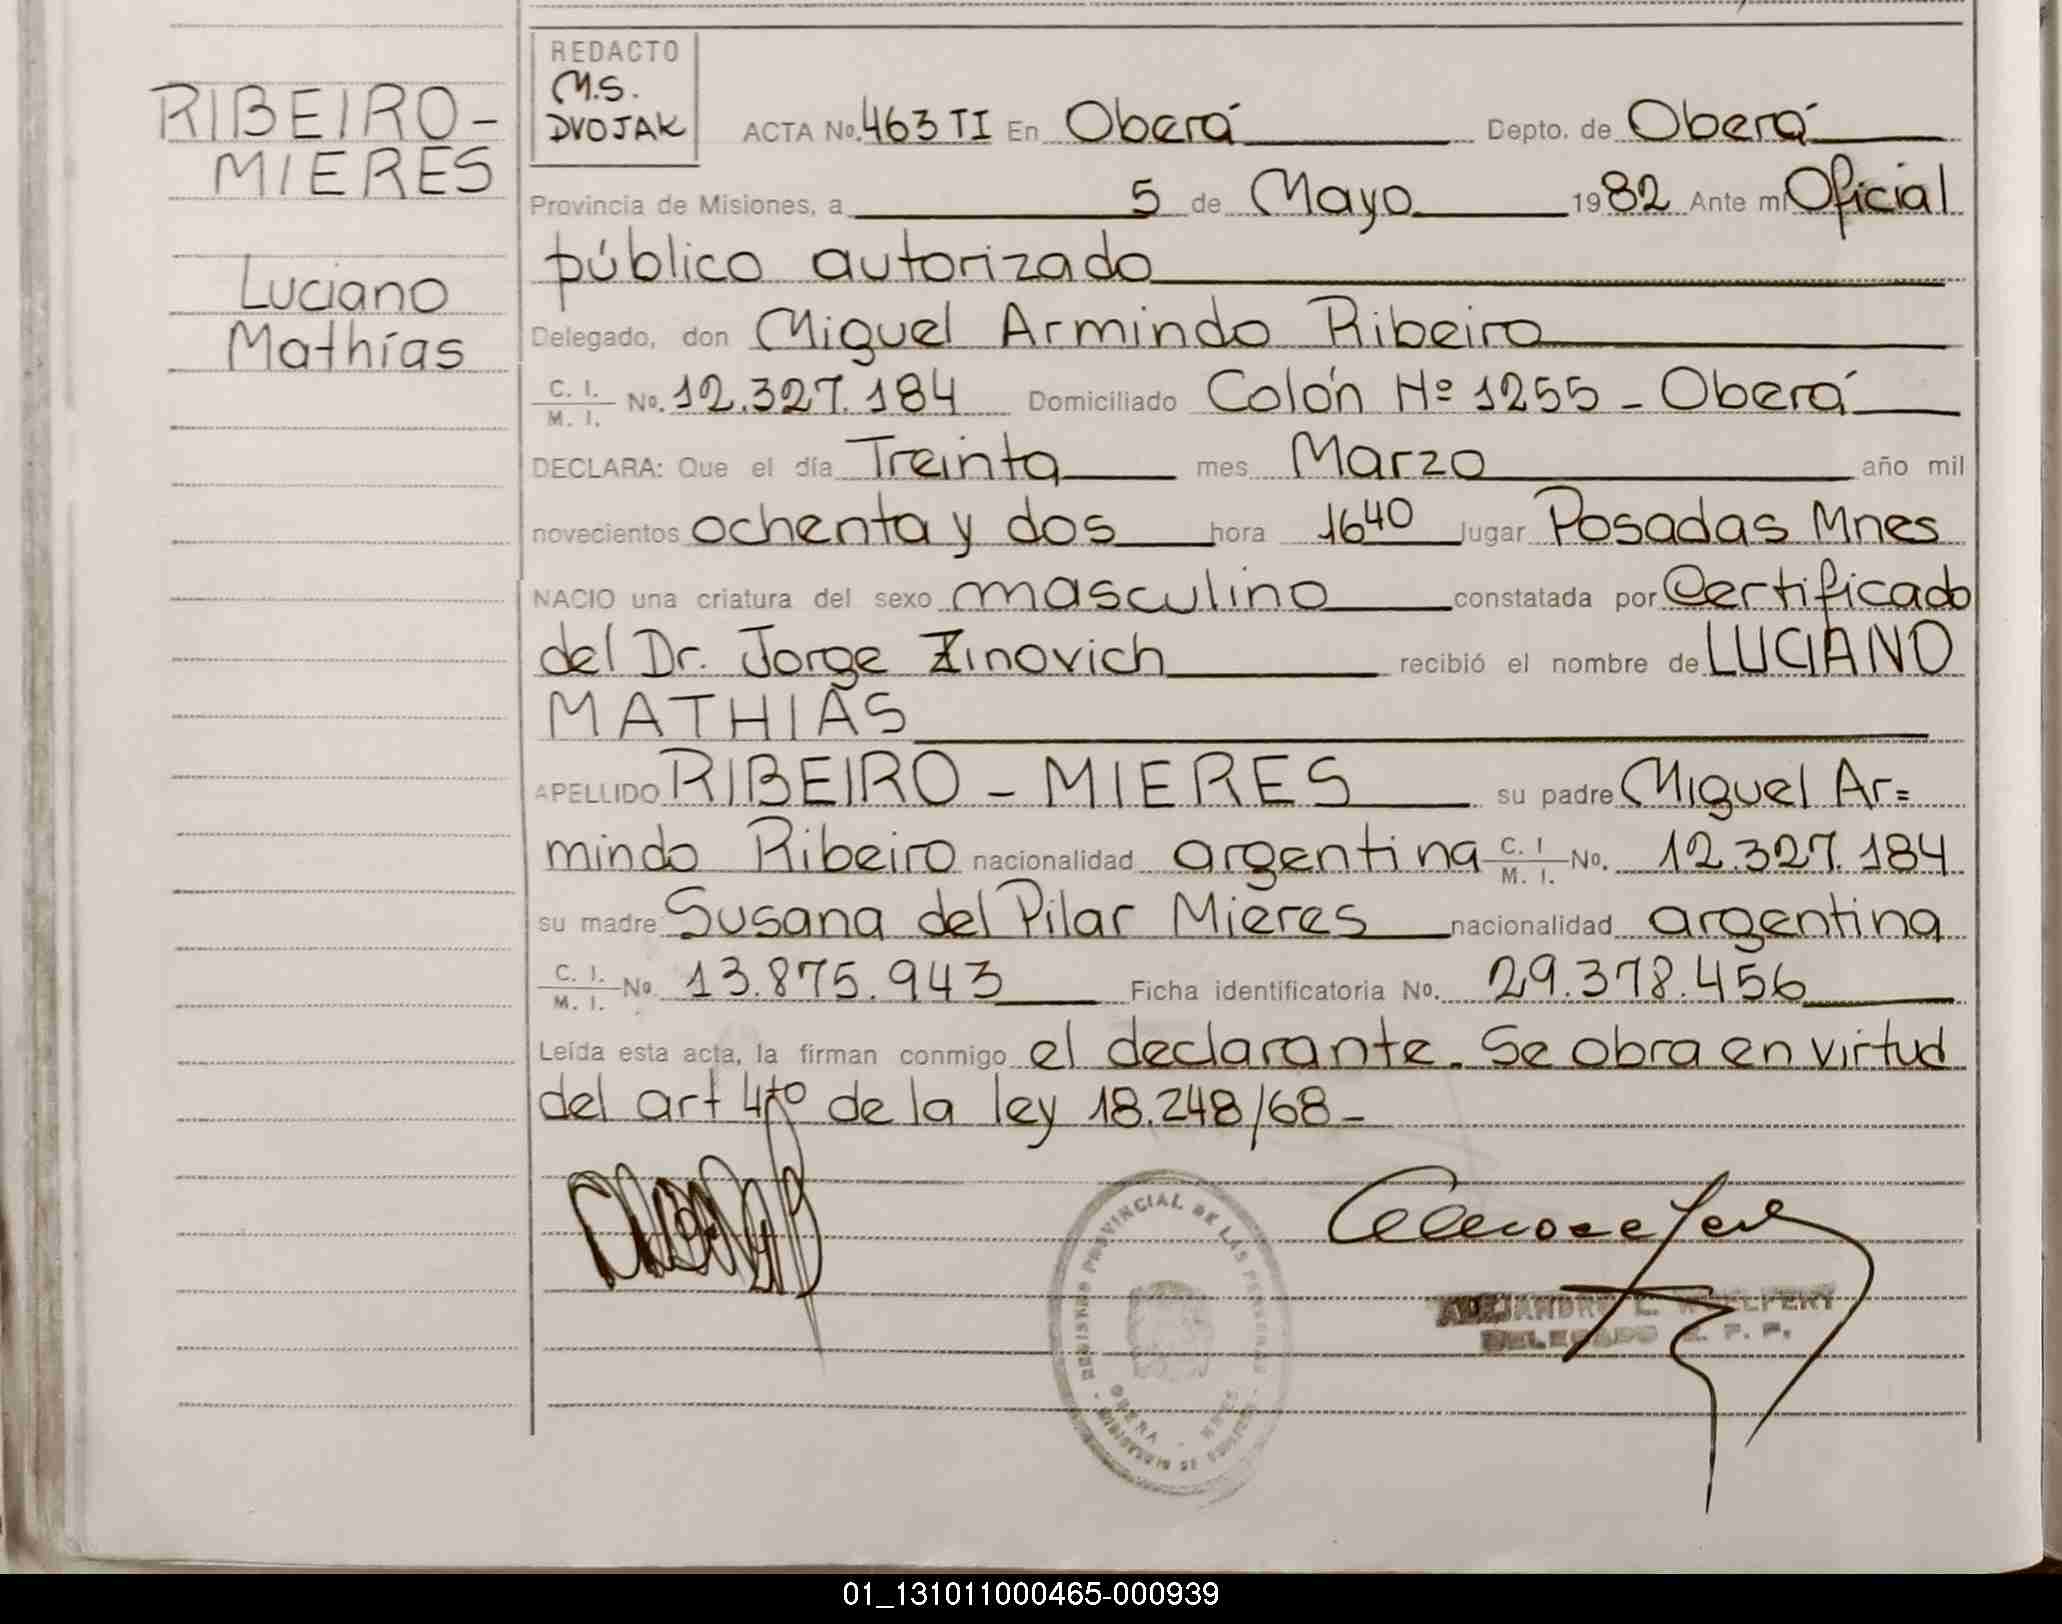 RIBEIRO-
MIERES
Luciano
Mathías
REDACTO
M.S.
DVOJAK
ACTA No. 463 TI En Oberá Depto. de Oberá
Provincia de Misiones, a 5 de Mayo 1982 Ante mí Oficial
público autorizado
Delegado, don Miguel Armindo Ribeiro
C. I. / M. I. No. 12.327.184 Domiciliado Colón Nº 1255 - Oberá
DECLARA: Que el día Treinta mes Marzo año mil
novecientos ochenta y dos hora 16 40 lugar Posadas Mnes
NACIO una criatura del sexo masculino constatada por Certificado
del Dr. Jorge Zinovich recibió el nombre de LUCIANO
MATHIAS
APELLIDO RIBEIRO - MIERES su padre Miguel Ar=
mindo Ribeiro nacionalidad argentina C. I / M. I. No. 12.327.184
su madre Susana del Pilar Mieres nacionalidad argentina
C. I. / M. I. No 13.875.943 Ficha identificatoria No. 29.378.456
Leída esta acta, la firman conmigo el declarante. Se obra en virtud
del art 4to de la ley 18.248/68-
REGISTRO PROVINCIAL DE LAS PERSONAS
OBERA - MNES
MINISTERIO DE
ALEJANDRO L.
DELEGADO R. P. P.
01_131011000465-000939